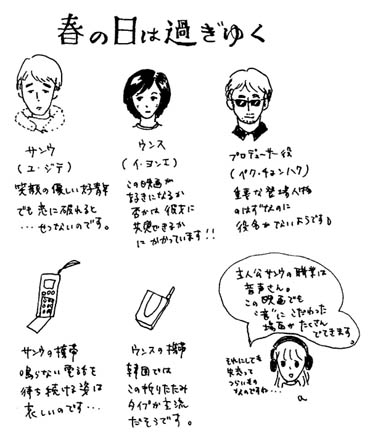 春の日は過ぎゆく
サンウ
(ユ・ジテ)
笑顔の優しい好青年
でも恋に破れると
…せつないのです。
ウンス
(イ・ヨンエ)
この映画が
好きになるか
否かは彼女に
共感できるか
にかかっています!!
プロデューサー役
(ペク・チョンハク)
重要な登場人物
のはずなのに
役名がでないようです。
サンウの携帯
鳴らない電話を
待ち続ける姿は
哀しいのです…
ウンスの携帯
韓国では
この折りたたみ
タイプが主流
だそうです。
主人公サンウの職業は
音声さん。
この映画でも
"音"にこだわった
場面がたくさん
でてきます。
それにしても
失恋って
つらいもの
なのですね…